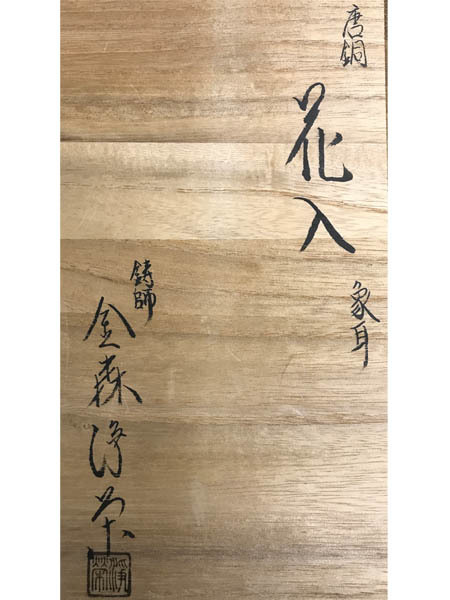 唐銅
花入
象耳
鋳師
金森浄栄
浄栄